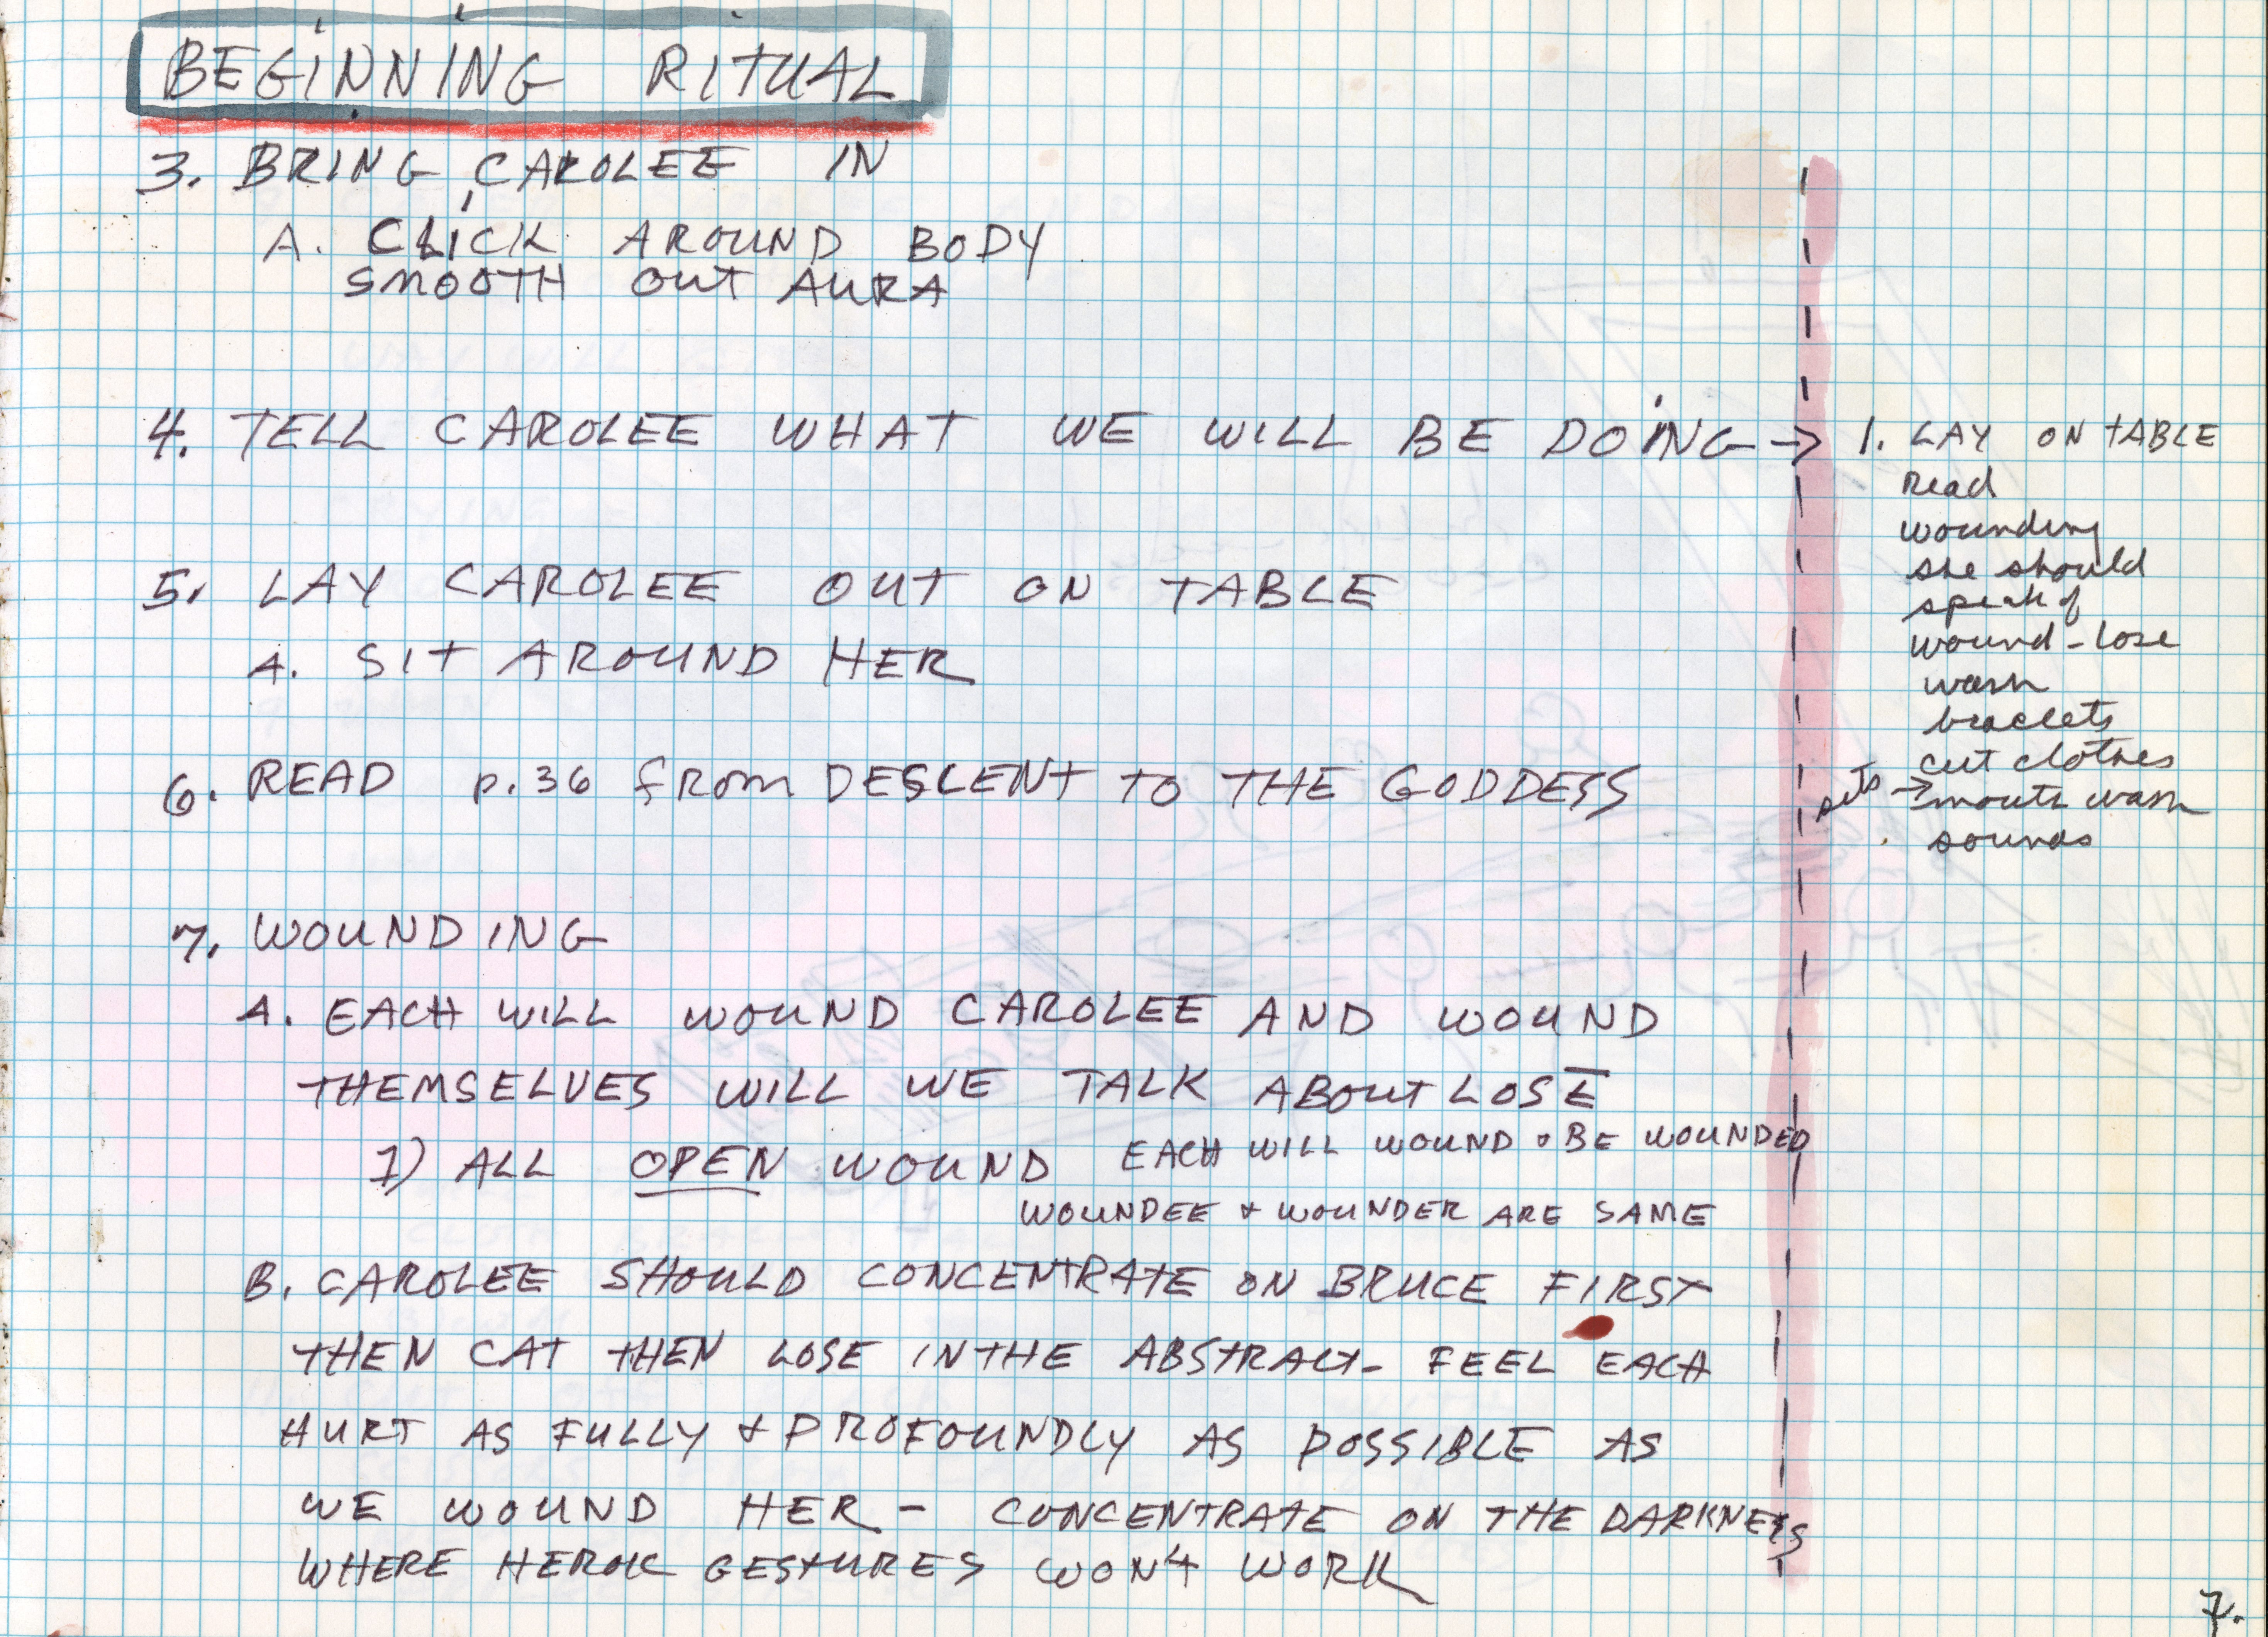 BEGINNING RITUAL
3. BRING CAROLEE IN
A. CLICK AROUND BODY
SMOOTH OUT AURA
4. TELL CAROLEE WHAT WE WILL BE DOING →
5. LAY CAROLEE OUT ON TABLE
A. SIT AROUND HER
6. READ p.36 from DESCENT TO THE GODDESS
7. WOUNDING
A. EACH WILL WOUND CAROLEE AND WOUND
THEMSELVES WILL WE TALK ABOUT LOSE
1) ALL OPEN WOUND EACH WILL WOUND & BE WOUNDED
WOUNDEE & WOUNDER ARE SAME
B. CAROLEE SHOULD CONCENTRATE ON BRUCE FIRST
THEN CAT THEN LOSE IN THE ABSTRACT - FEEL EACH
HURT AS FULLY & PROFOUNDLY AS POSSIBLE AS
WE WOUND HER - CONCENTRATE ON THE DARKNESS
WHERE HEROIC GESTURES WON'T WORK
1. LAY ON TABLE
Read
wounding
she should
speak of
wound - lose
wash
braclets
cut clothes
→ mouth wash
sounds
7.